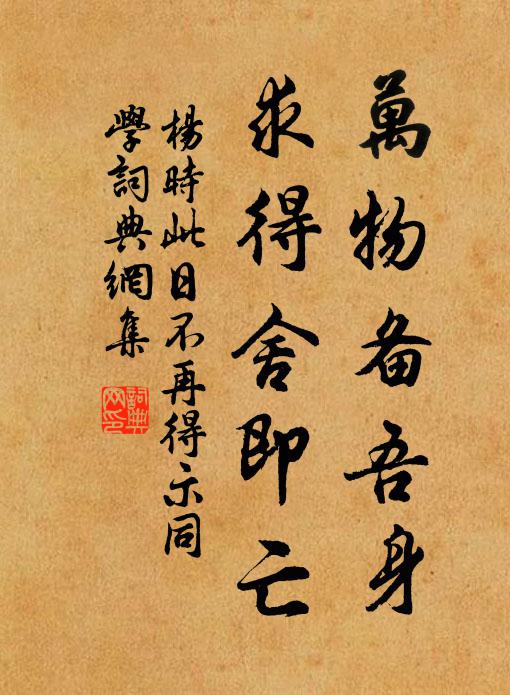 萬物备吾身
求得舍即亡
楊時此日不再得示同
學詞典網集
詞典網印